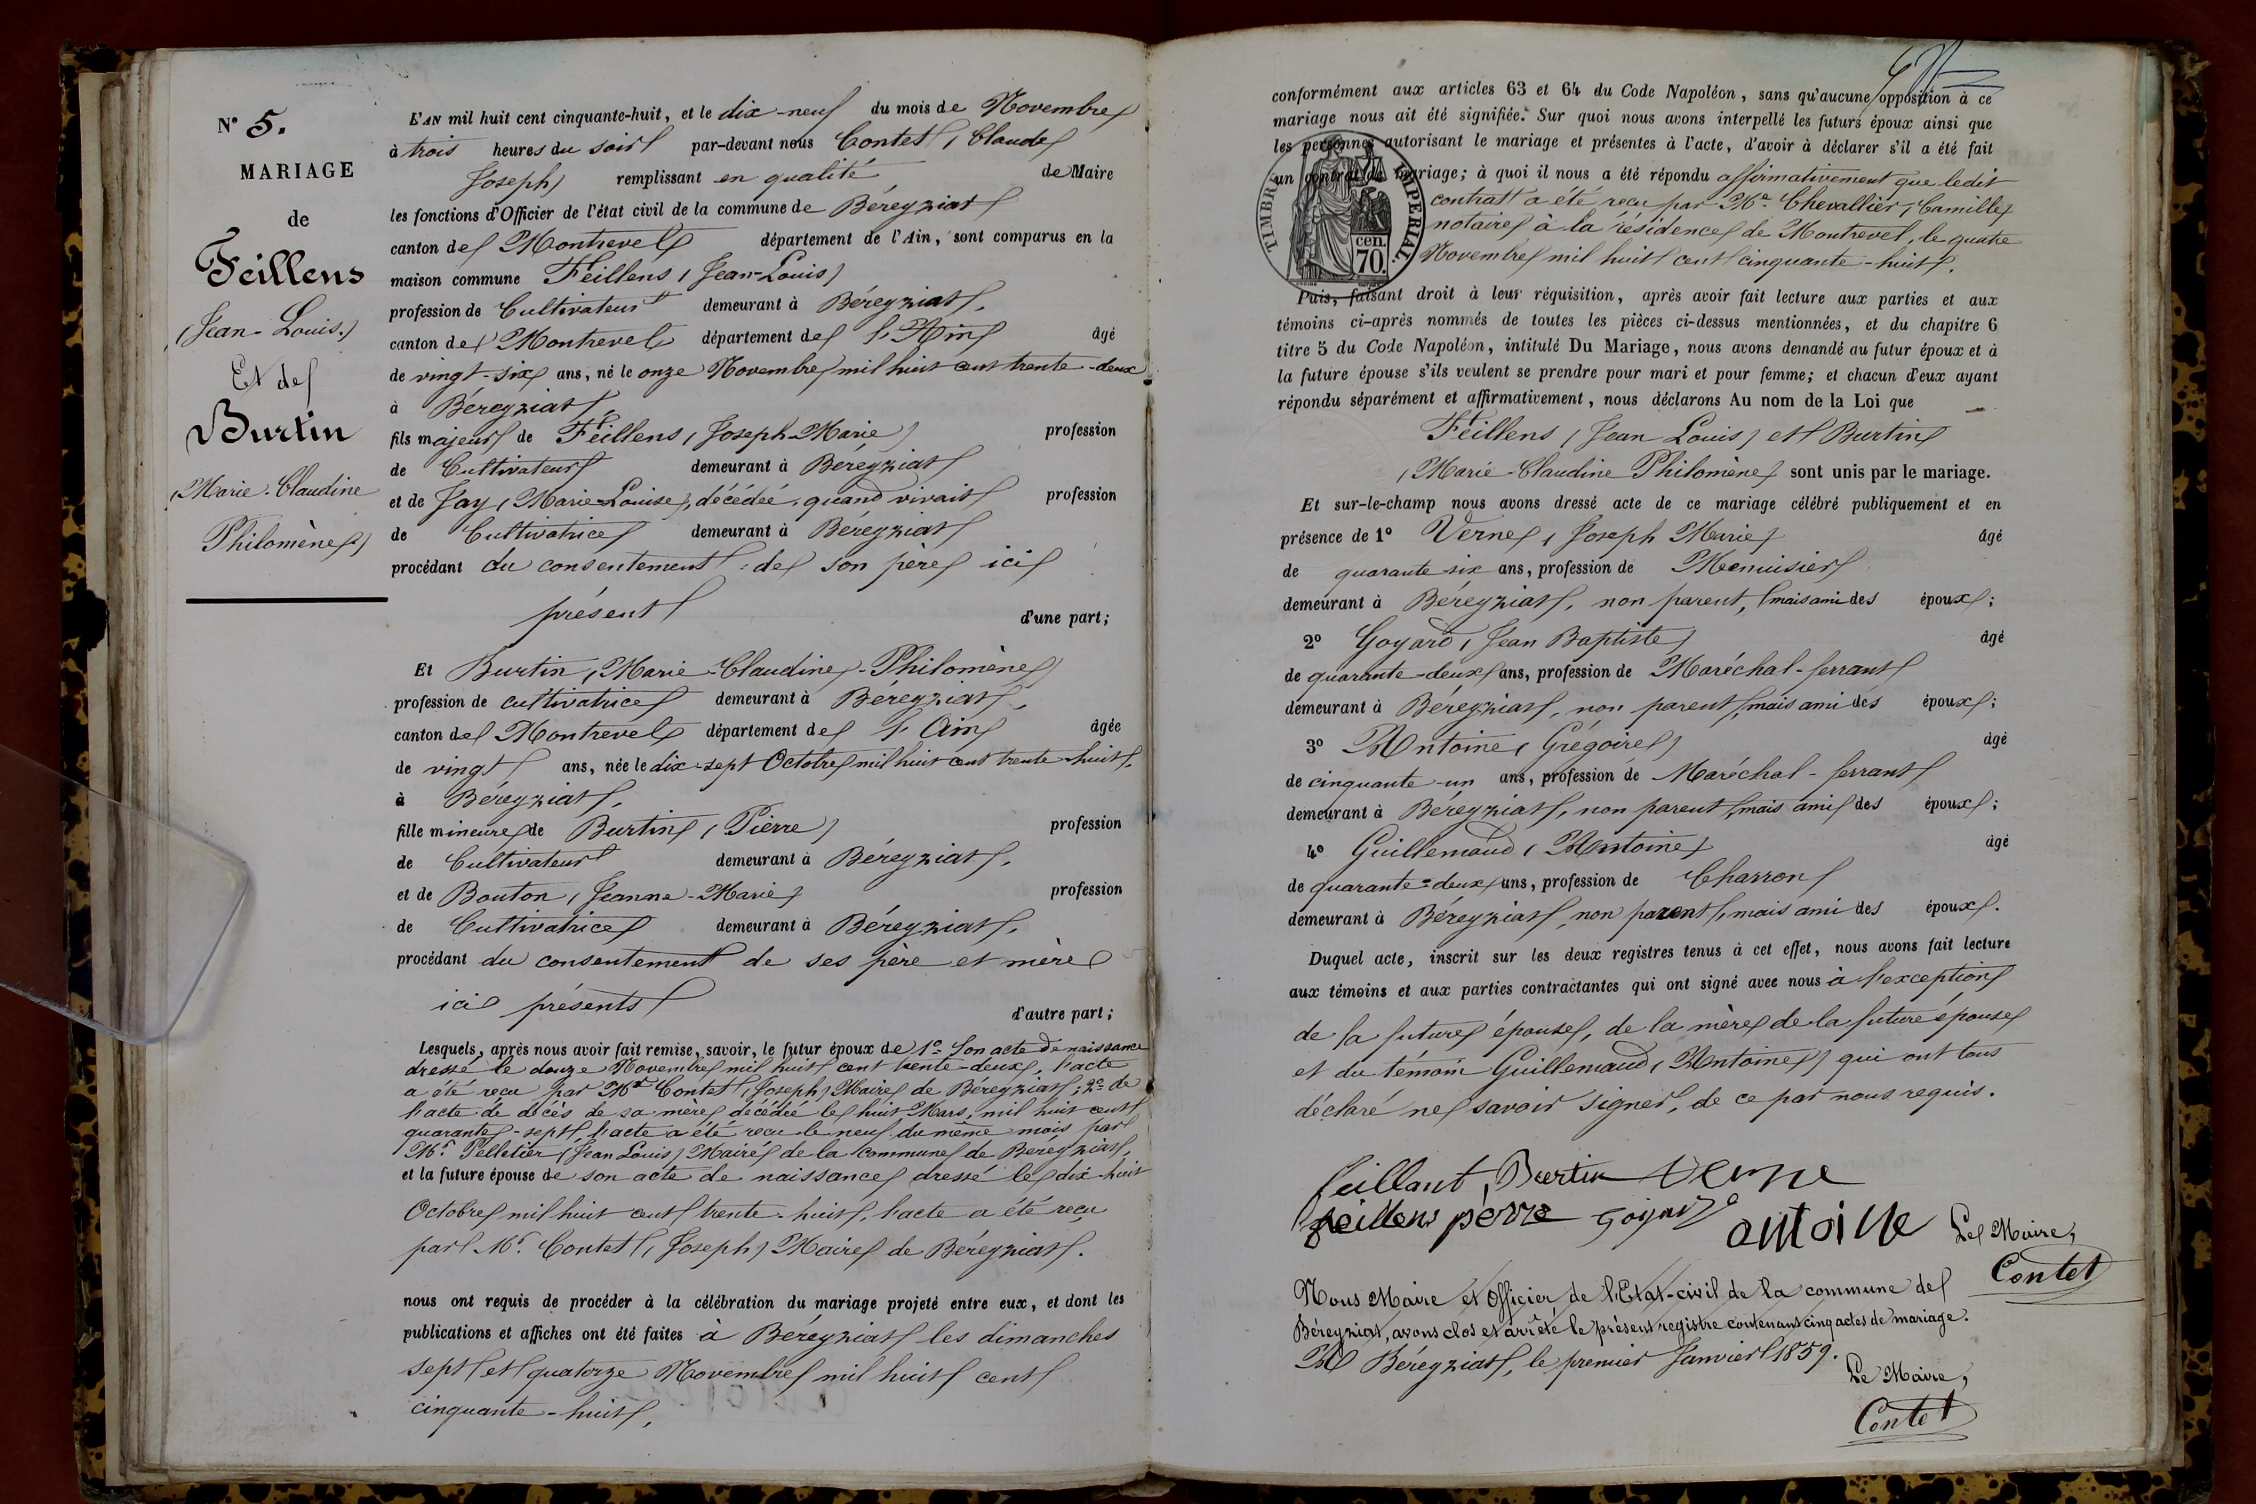 N° 5.
MARIAGE
de
Féillens
(Jean-Louis.)
Et de
Burtin
(Marie-Claudine
Philomène)
L'AN mil huit cent cinquante-huit, et le dix-neuf du mois de Novembre
à trois heures du soir par-devant nous Contet (Claude
Joseph) remplissant en qualité de Maire
les fonctions d'Officier de l'état civil de la commune de Béreyziat
canton de Montrevel département de l'Ain, sont comparus en la
maison commune Féillens (Jean-Louis)
profession de Cultivateur demeurant à Béreyziat,
canton de Montrevel département de l'Ain âgé
de vingt-six ans, né le onze Novembre mil huit cent trente-deux
à Béreyziat,
fils majeur de Féillens (Joseph-Marie) profession
de Cultivateur demeurant à Béreyziat
et de Jay (Marie-Louise), décédée, quand vivait profession
de Cultivatrice demeurant à Béreyziat
procédant du consentement de son père ici
présent d'une part;
Et Burtin (Marie-Claudine-Philomène)
profession de cultivatrice demeurant à Béreyziat,
canton de Montrevel département de l'Ain âgée
de vingt ans, née le dix-sept Octobre mil huit cent trente-huit,
à Béreyziat,
fille mineure de Burtin (Pierre) profession
de Cultivateur demeurant à Béreyziat,
et de Bouton (Jeanne-Marie) profession
de Cultivatrice demeurant à Béreyziat,
procédant du consentement de ses père et mère
ici présents d'autre part;
Lesquels, après nous avoir fait remise, savoir, le futur époux de 1° Son acte de naissance
dressé le douze Novembre mil huit cent trente-deux, l'acte
a été reçu par Mr Contet (Joseph) Maire de Béreyziat; 2° de
l'acte de décès de sa mère décédée le huit Mars, mil huit cent
quarante-sept l'acte a été reçu le neuf du même mois par
Mr. Pelletier (Jean Louis) Maire de la commune de Béreyziat,
et la future épouse de son acte de naissance dressé le dix-huit
Octobre mil huit cent trente-huit, l'acte a été reçu
par Mr. Contet (Joseph) Maire de Béreyziat.
nous ont requis de procéder à la célébration du mariage projeté entre eux, et dont les
publications et affiches ont été faites à Béreyziat les dimanches
sept et quatorze Novembre mil huit cent
cinquante-huit,
conformément aux articles 63 et 64 du Code Napoléon, sans qu'aucune opposition à ce
mariage nous ait été signifiée. Sur quoi nous avons interpellé les futurs époux ainsi que
les personnes autorisant le mariage et présentes à l'acte, d'avoir à déclarer s'il a été fait
un contrat de mariage; à quoi il nous a été répondu affirmativement que ledit
contrat a été reçu par Me. Chevallier (Camille)
notaire à la résidence de Montrevel, le quatre
Novembre mil huit cent cinquante-huit.
TIMBRE IMPERIAL.
70 cen.
Puis, faisant droit à leur réquisition, après avoir fait lecture aux parties et aux
témoins ci-après nommés de toutes les pièces ci-dessus mentionnées, et du chapitre 6
titre 5 du Code Napoléon, intitulé Du Mariage, nous avons demandé au futur époux et à
la future épouse s'ils veulent se prendre pour mari et pour femme; et chacun d'eux ayant
répondu séparément et affirmativement, nous déclarons Au nom de la Loi que
Féillens (Jean Louis) et Burtin
(Marie-Claudine Philomène) sont unis par le mariage.
Et sur-le-champ nous avons dressé acte de ce mariage célébré publiquement et en
présence de 1° Verne (Joseph Marie) âgé
de quarante-six ans, profession de Menuisier
demeurant à Béreyziat, non parent, mais ami des époux;
2° Goyard (Jean Baptiste) âgé
de quarante-deux ans, profession de Maréchal-ferrant
demeurant à Béreyziat, non parent, mais ami des époux;
3° Antoine (Grégoire) âgé
de cinquante-un ans, profession de Maréchal-ferrant
demeurant à Béreyziat, non parent, mais ami des époux;
4° Guillemaud (Antoine) âgé
de quarante-deux ans, profession de Charron
demeurant à Béreyziat, non parent, mais ami des époux.
Duquel acte, inscrit sur les deux registres tenus à cet effet, nous avons fait lecture
aux témoins et aux parties contractantes qui ont signé avec nous à l'exception
de la future épouse, de la mère de la future épouse
et du témoin Guillemaud (Antoine) qui ont tous
déclaré ne savoir signer, de ce par nous requis.
feillant Burtin verne
feillens pérre Goyard antoine Le Maire,
Contet
Nous Maire et Officier de l'Etat-civil de la commune de
Béreyziat, avons clos et arrêté le présent registre contenant cinq actes de mariage.
A Béreyziat, le premier Janvier 1859.
Le Maire,
Contet